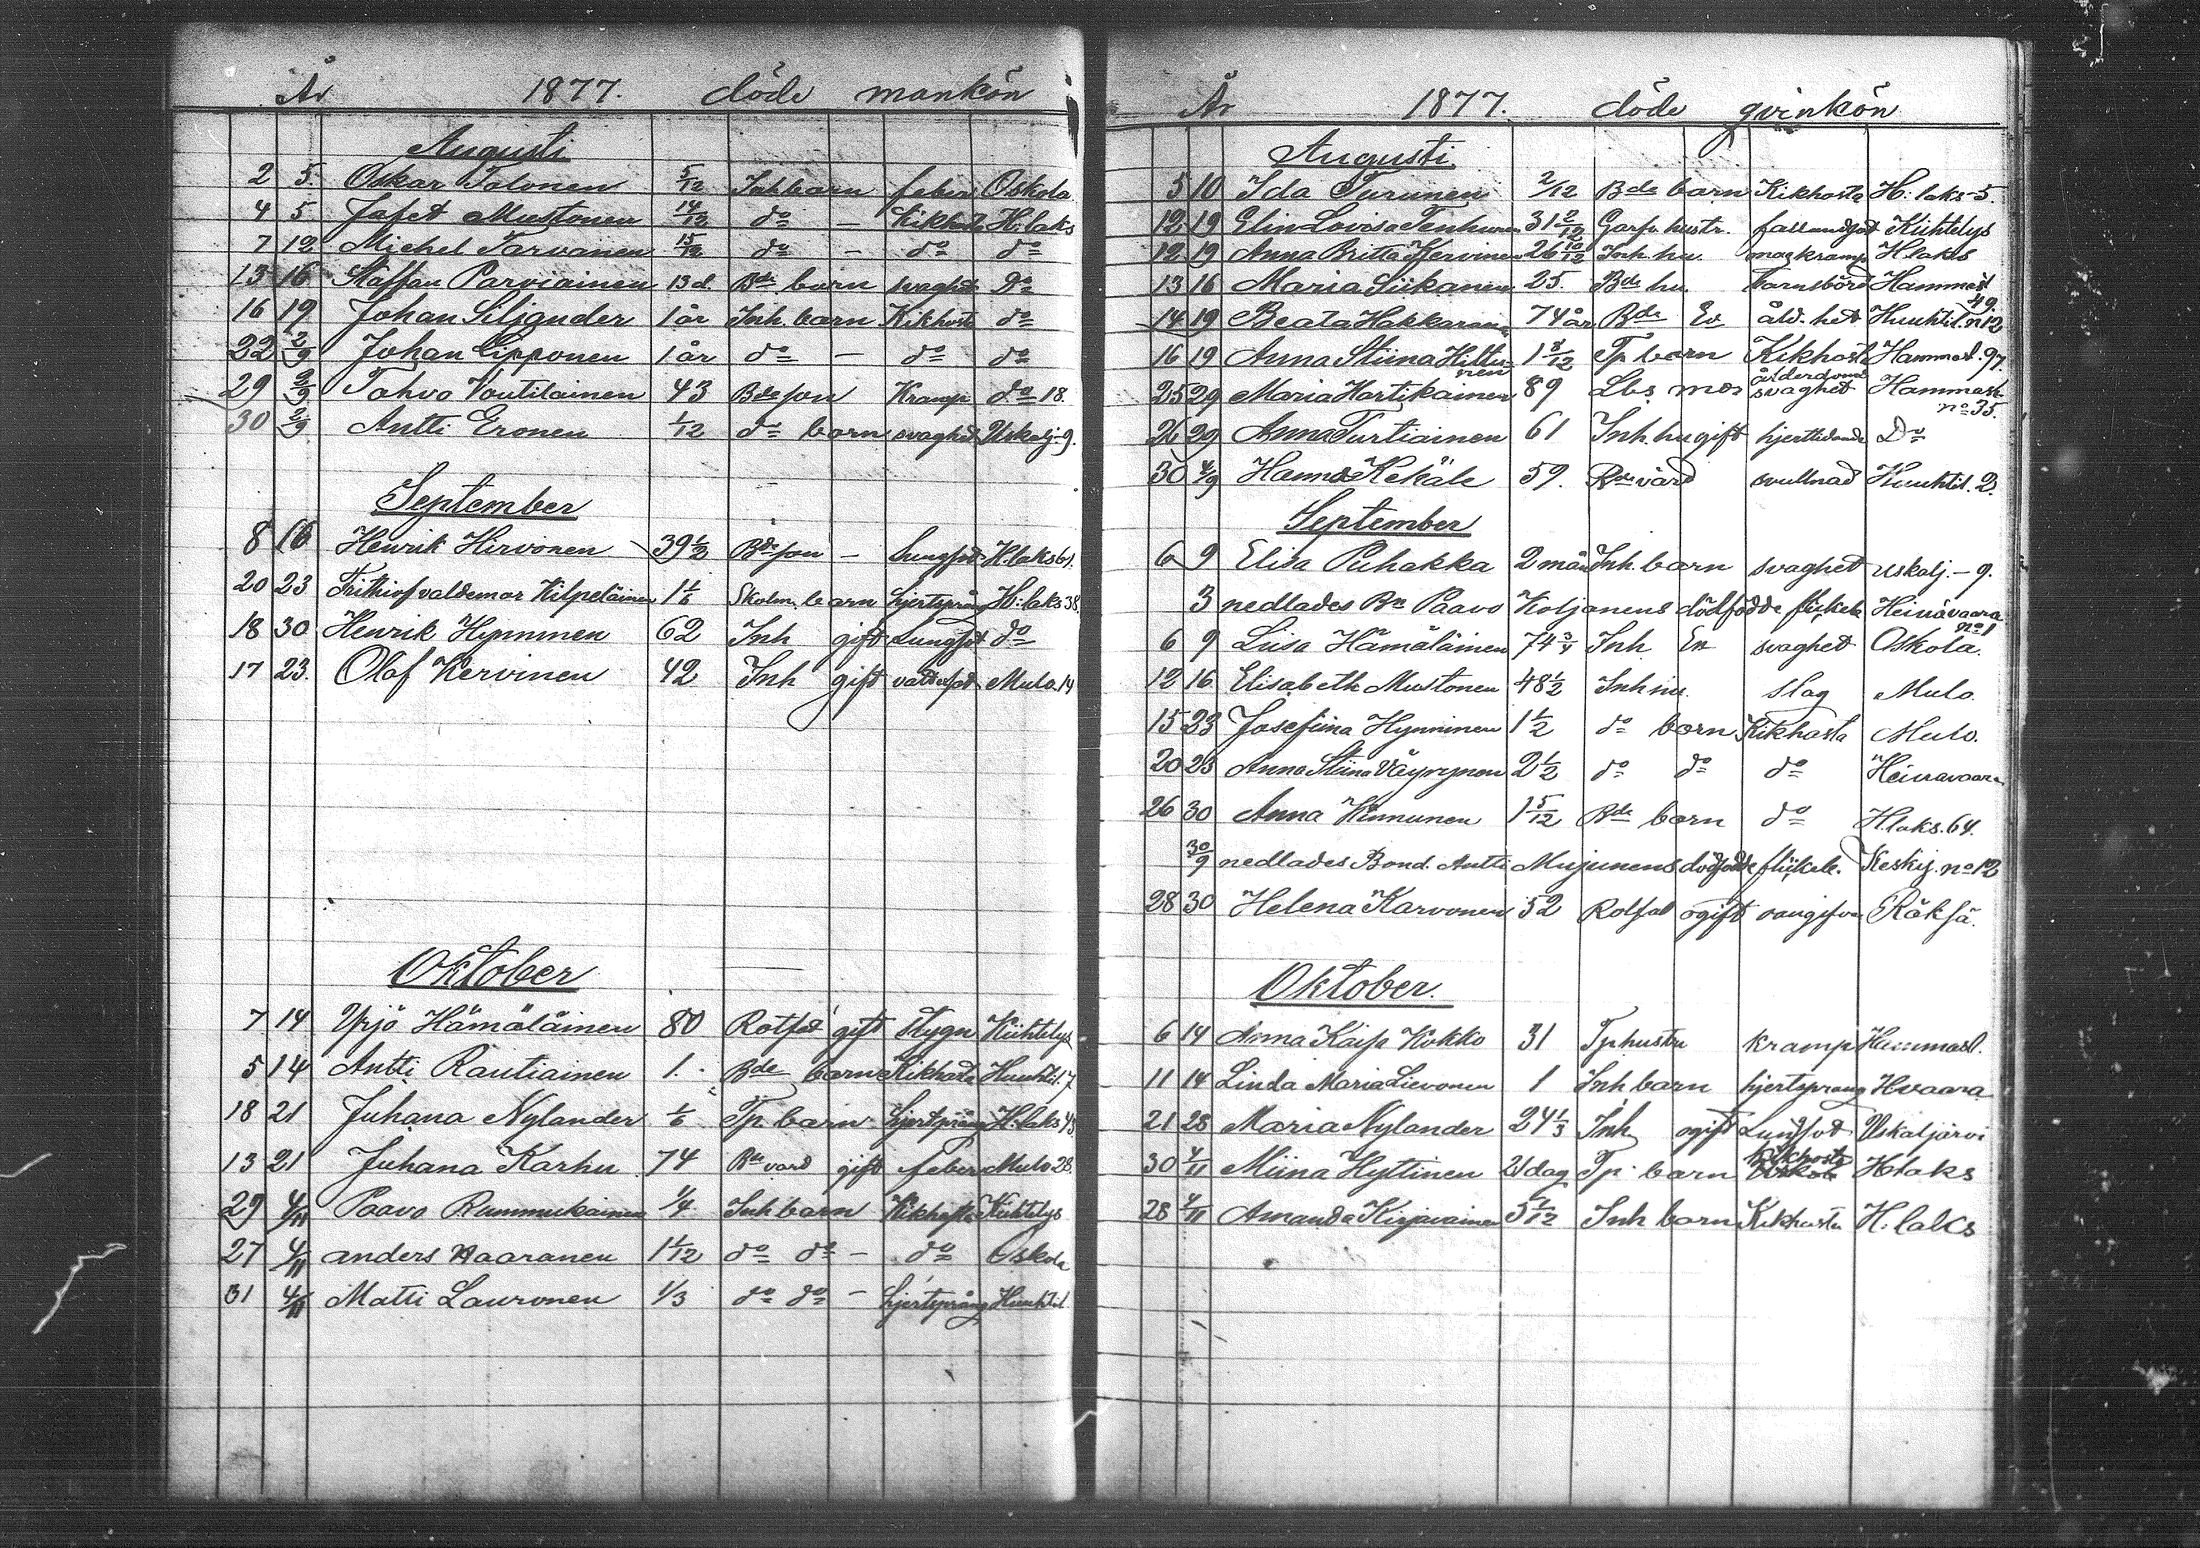 År 1877. döde mankön
Augusti
2 5. Oskar Tolonen 5/12 Inh barn feber Oskola
4 5. Jafet Mustonen 14/12 do — Kikhosta H:laks
7 12 Michel Tarvanen 15/12 do — do do
13 16 Staffan Parviainen 13 d. Bde barn svaghet Do
16 19 Johan Siljander 1 år Inh. barn Kikhosta do
22 2/9 Johan Lipponen 1 år do — do do
29 2/9 Tahvo Voutilainen 43 Bde son Kramp do 18.
30 2/9 Antti Eronen 1/12 do barn svaghet Uskalj. 9.
September
8 16 Henrik Hirvonen 39 1/2 Bde son — Lungsot H.laks 61.
20 23 Frithiof valdemar Kilpeläinen 1 1/6 Skolm. barn hjertsprång H:laks 38.
18 30 Henrik Hynninen 62 Inh gift Lungsot do
17 23. Olof Kervinen 42 Inh gift vattusot Mulo. 14
Oktober
7 14 Yrjö Hämäläinen 80 Rotfat gift Stygn Kiihtelys
5 14 Antti Rautiainen 1. Bde barn Kikhosta Huuhtil. 7
18 21 Juhana Nylander 1/6 Tp. barn hjertsprång H:laks 48
13 21 Juhana Karhu 74 Bde vard gift feber Mulo 28.
29 4/11 Paavo Rummukainen 1/4 Inh barn Kikhosta Kiihtelys
27 4/11 anders Haaranen 1 1/12 do do — do Oskola
31 4/11 Matti Lauronen 1/3 do do — hjertsprång Huuhtil.
År 1877. döde qvinkön
Augusti.
5 10 Ida Turunen 2/12 Bde barn Kikhosta H:laks 5.
12 19 Elin Lovisa Tenhunen 31 2/12 Garfv. hustr. fallandsot Kiihtelys
12 19 Anna Britta Kervinen 26 10/12 Inh. hu. magkramp H.laks
13 16 Maria Siikanen 25. Bde hu barnsbörd Hammasl 49.
14 19 Beata Hakkarainen 74 år Bde Ea åld. het Huuhtil. no 12
16 19 Anna Stiina Hiltunen 1 8/12 Tp barn Kikhosta Hammasl. 97.
25 29 Maria Hartikainen 89 Lbs mor ålderdoms svaghet Hammasl no 35.
26 29 Anna Turtiainen 61 Inh. hu gift hjertlidande Do
30 4/9 Hanna Kekäle 59. Bde värd svullnad Huuhtil. 2.
September
6 9 Elisa Puhakka 2 mån Inh. barn svaghet Uskalj. – 9.
3 nedlades Bn Paavo Koljonens dödfödde flicka Heinävaara no 1
6 9 Liisa Hämäläinen 74 3/4 Inh Ea svaghet Oskola.
12 16 Elisabeth Mustonen 48 1/2 Inh hu. slag Mulo.
15 23 Josefiina Hynninen 1 1/2 do barn Kikhosta Mulo.
20 23 Anna Stiina Väyrynen 2 1/2 do do do Heinavaara
26 30 Anna Kinnunen 1 5/12 Bde barn do H.laks. 64.
30/9 nedlades Bond. Antti Mujunens dödfödde flicka. Keskij. no 12
28 30 Helena Karvonen 52 Rotfat ogift Räksä.
Oktober.
6 14 Anna Kaisa Kokko 31 Tp hustru kramp Hammasl.
11 14 Linda Maria Lievonen 1 Inh barn hjertsprang Hvaara
21 28 Maria Nylander 24 1/3 Inh ogift Lungsot Uskaljärvi
30 4/11 Miina Hyttinen 21 dag Tp. barn Kikhosta H.laks
28 4/11 Amanda Kirjavainen 5 1/12 Inh barn Kikhusta H:laks